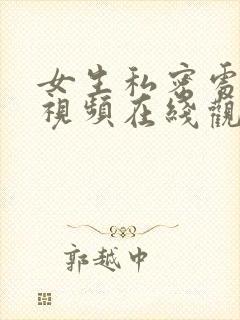 女生私密電
視頻在綫觀
郭越中